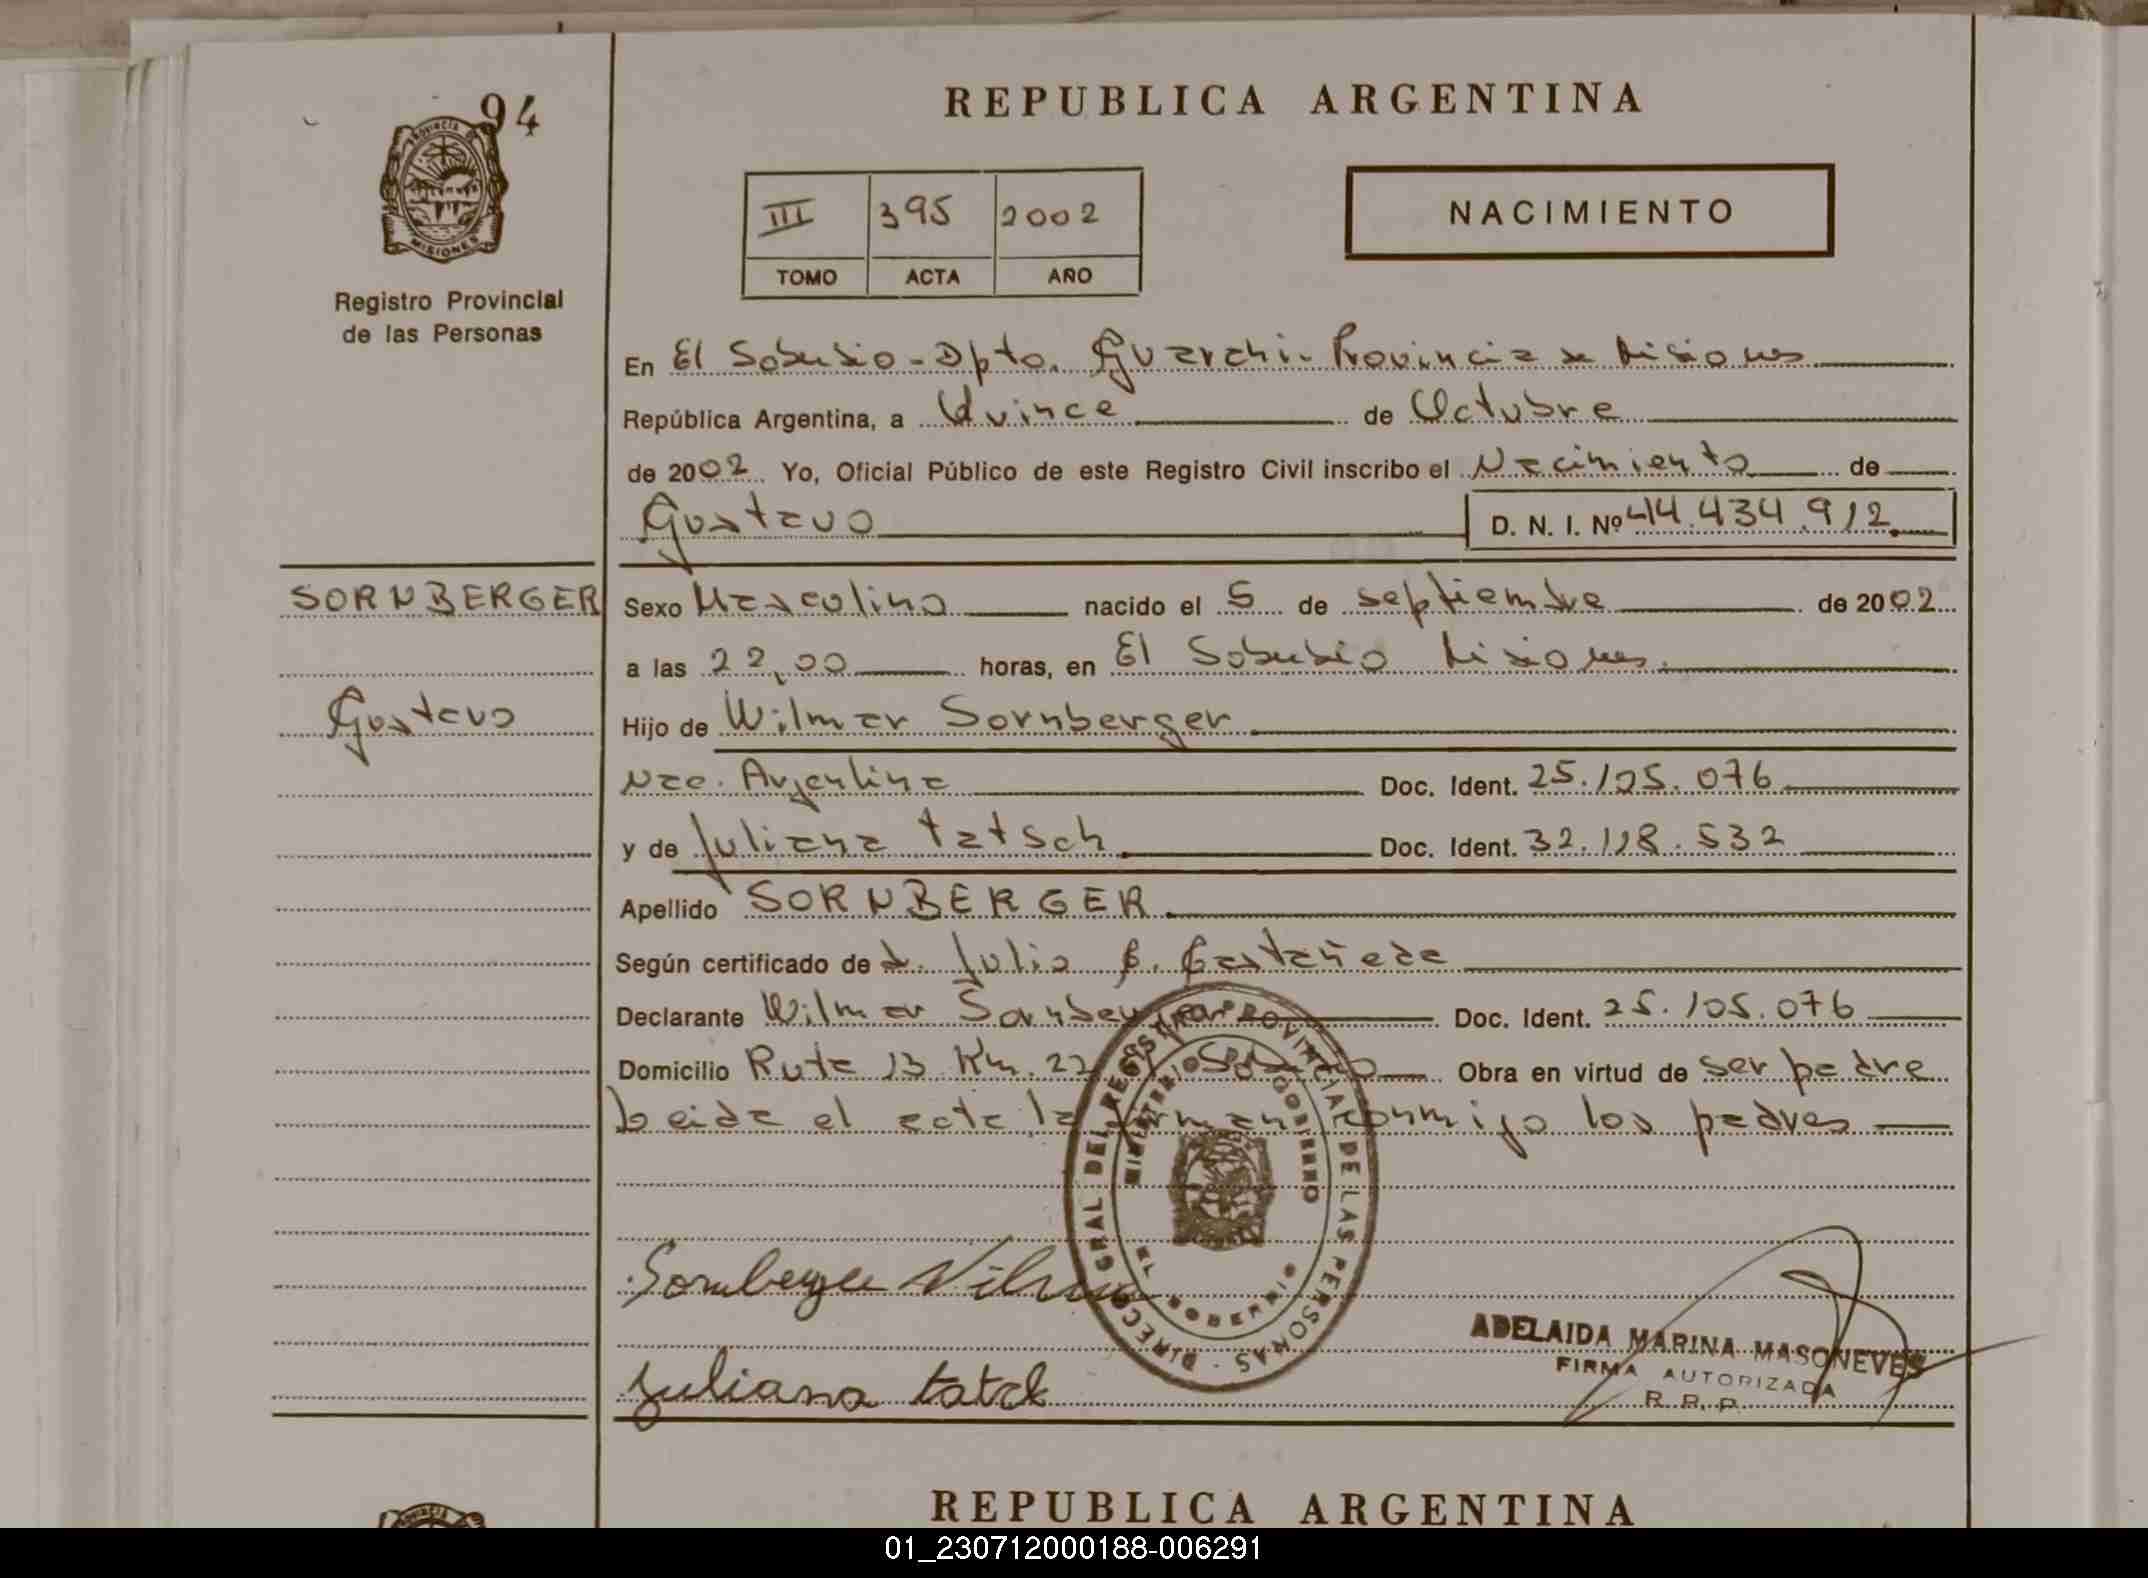 94
PROVINCIA DE
MISIONES
Registro Provincial
de las Personas
REPUBLICA ARGENTINA
III 395 2002
TOMO ACTA AÑO
NACIMIENTO
En El Soberbio - Dpto. Guaraní - Provincia de Misiones
República Argentina, a Quince de Octubre
de 2002 Yo, Oficial Público de este Registro Civil inscribo el Nacimiento de
Gustavo D. N. I. Nº 44.434.912
SORNBERGER
Gustavo
Sexo Masculino nacido el 5 de septiembre de 2002
a las 22,00 horas, en El Soberbio Misiones.
Hijo de Wilmar Sornberger
Nac. Argentina Doc. Ident. 25.105.076
y de Juliana tatsch Doc. Ident. 32.118.532
Apellido SORNBERGER
Según certificado de d. Julio C. Castañeda
Declarante Wilmar Sornberger Doc. Ident. 25.105.076
Domicilio Ruta 13 Km. 22 El Soberbio Obra en virtud de ser padre
Leida el acta la firman conmigo los padres
DIRECC. GRAL DEL REGISTRO PROVINCIAL DE LAS PERSONAS
MINISTERIO DE GOBIERNO
EL SOBERBIO
Sornberger Wilmar
Juliana tatsch
ADELAIDA MARINA MASONEVES
FIRMA AUTORIZADA
R. P. P.
REPUBLICA ARGENTINA
01_230712000188-006291